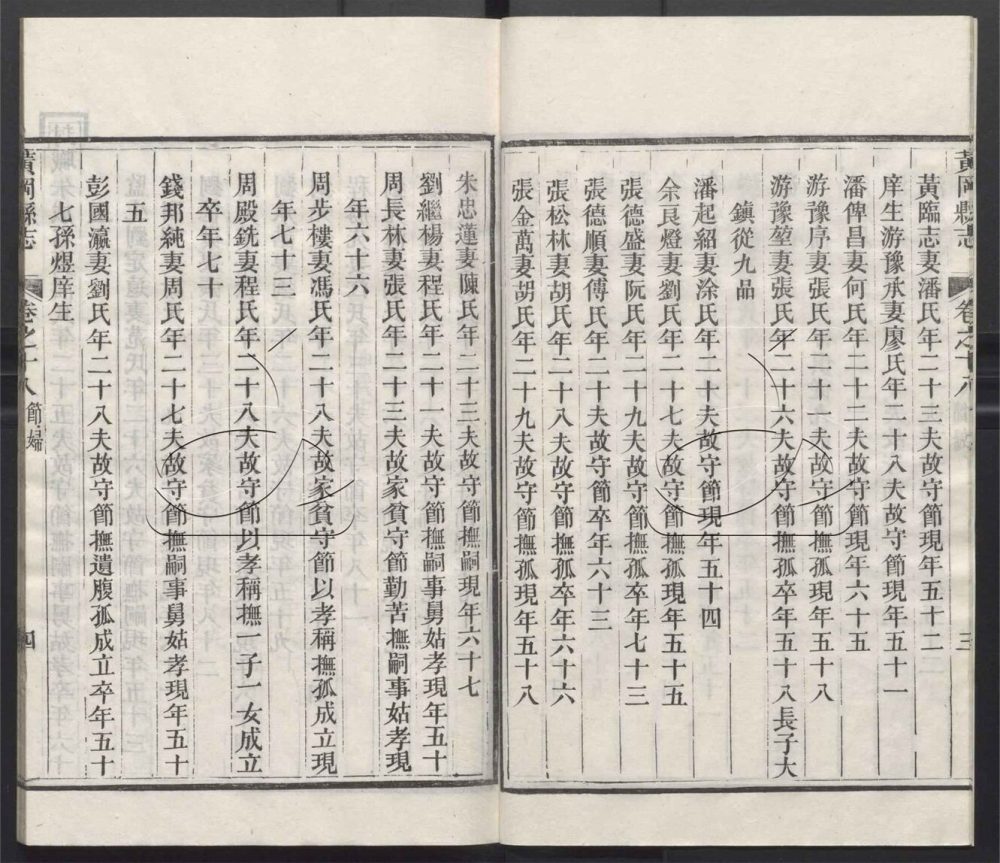 黃岡縣志 卷之十八 三
黃臨志妻潘氏年二十三夫故守節現年五十二
庠生游豫承妻廖氏年二十八夫故守節現年五十一
潘俾昌妻何氏年二十二夫故守節現年六十五
游豫序妻張氏年二十一夫故守節撫孤現年五十八
游豫堃妻張氏年二十六夫故守節撫孤卒年五十八長子大
鎮從九品
潘起紹妻涂氏年二十夫故守節現年五十四
余艮燈妻劉氏年二十七夫故守節撫孤現年五十五
張德盛妻阮氏年二十九夫故守節撫孤卒年七十三
張德順妻傅氏年二十夫故守節卒年六十三
張松林妻胡氏年二十八夫故守節撫孤卒年六十六
張金萬妻胡氏年二十九夫故守節撫孤現年五十八
朱忠蓮妻陳氏年二十三夫故守節撫嗣現年六十七
劉繼楊妻程氏年二十一夫故守節撫嗣事舅姑孝現年五十
周長林妻張氏年二十三夫故家貧守節勤苦撫嗣事姑孝現
年六十六
周步樓妻馮氏年二十八夫故家貧守節以孝稱撫孤成立現
年七十三
周殿銑妻程氏年二十八夫故守節以孝稱撫一子一女成立
卒年七十
錢邦純妻周氏年二十七夫故守節撫嗣事舅姑孝現年五十
五
彭國瀛妻劉氏年二十八夫故守節撫遺腹孤成立卒年五十
七孫煜庠生
黃岡縣志 卷之十八 節婦 四